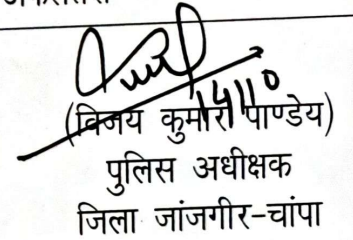 14/10
(विजय कुमार पाण्डेय)
पुलिस अधीक्षक
जिला जांजगीर-चांपा